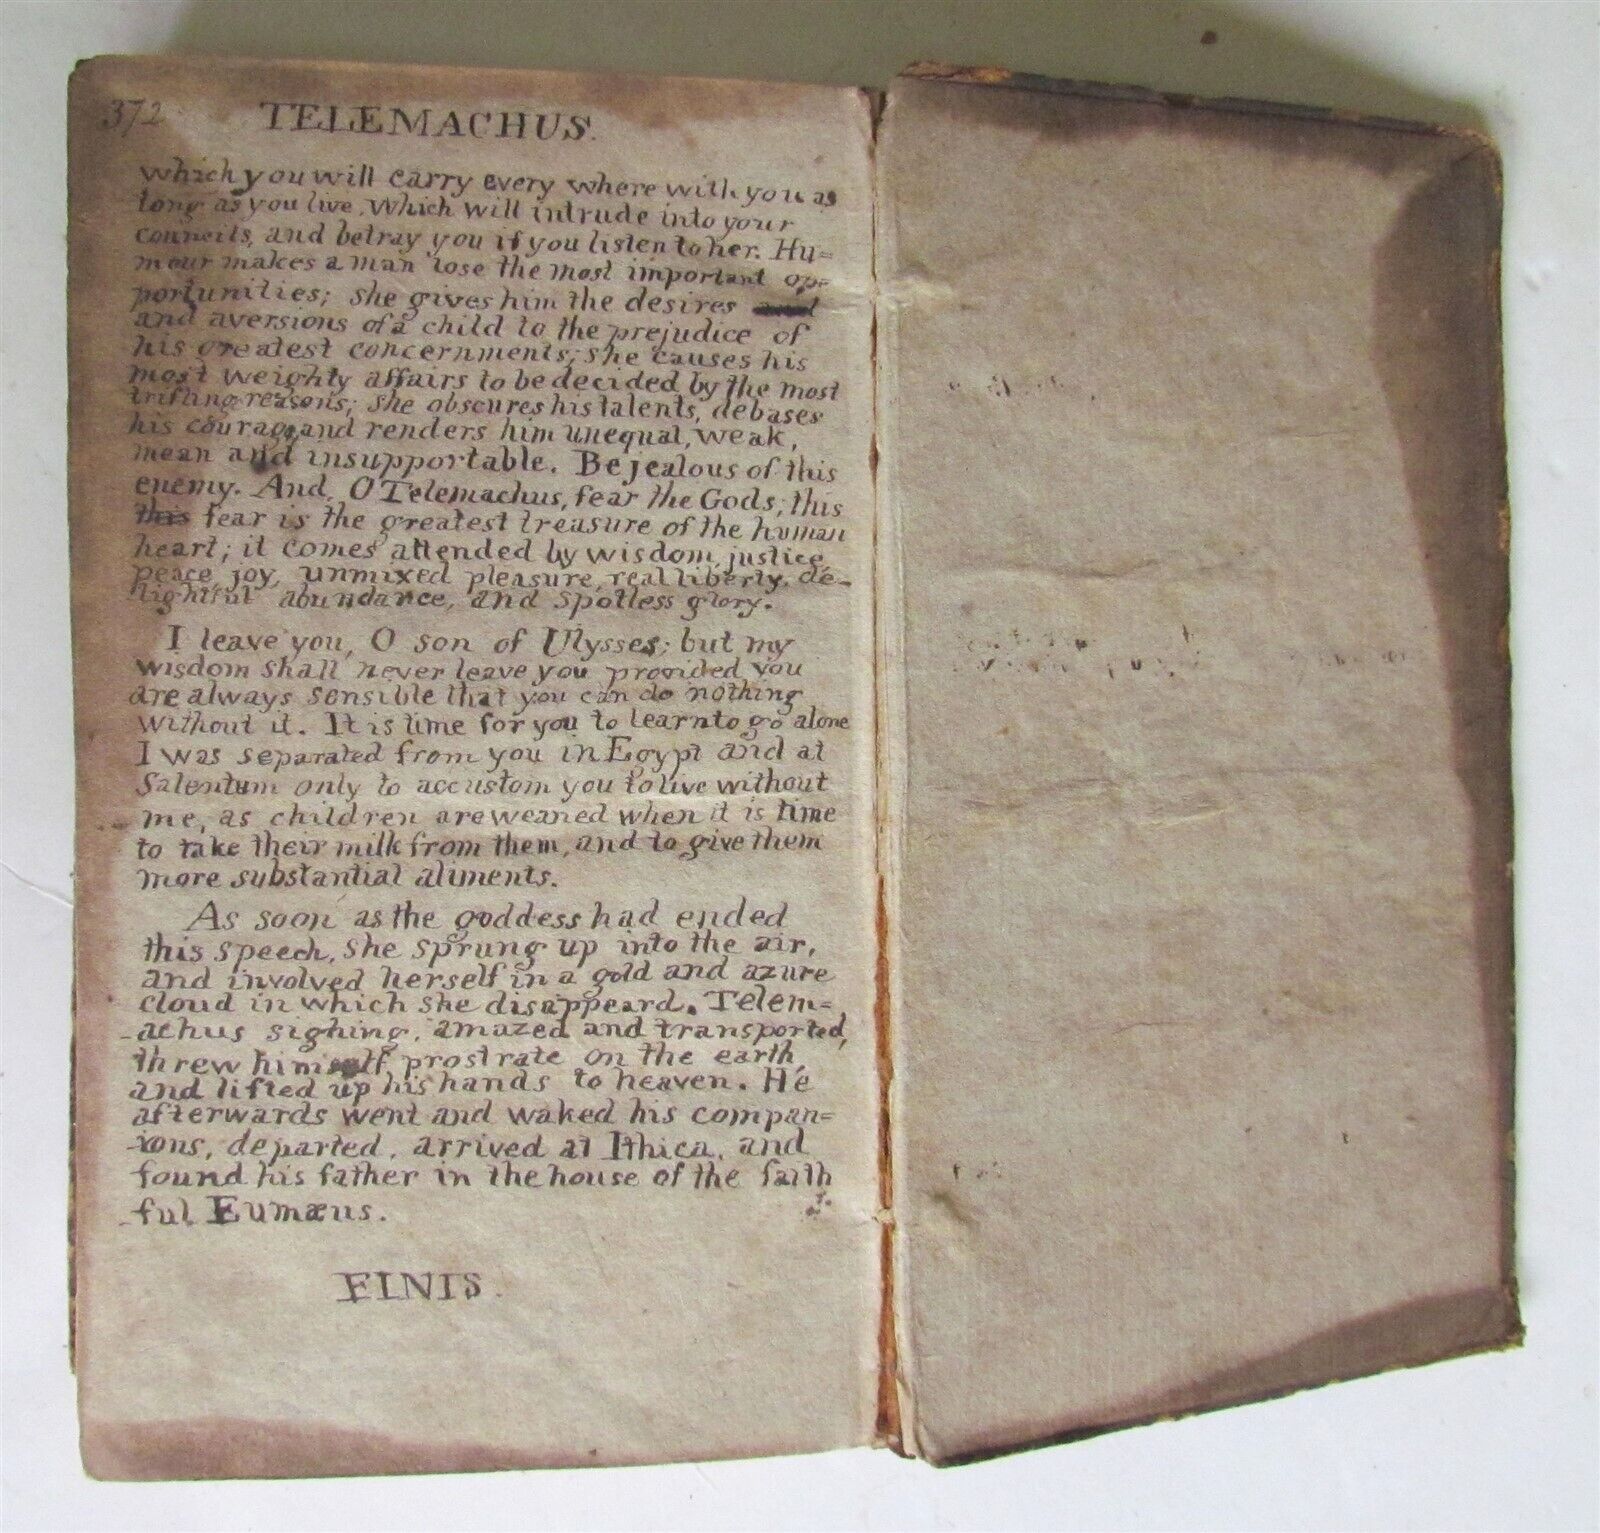 372 TELEMACHUS.
which you will carry every where with you as
long as you live. Which will intrude into your
councils, and betray you if you listen to her. Hu=
mour makes a man lose the most important op=
portunities; she gives him the desires and
and aversions of a child to the prejudice of
his greatest concernments; she causes his
most weighty affairs to be decided by the most
trifling reasons; she obscures his talents, debases
his courage, and renders him unequal, weak,
mean and insupportable. Be jealous of this
enemy. And, O Telemachus, fear the Gods; this
this fear is the greatest treasure of the human
heart; it comes attended by wisdom, justice,
peace, joy, unmixed pleasure, real liberty, de-
lightful abundance, and spotless glory.
I leave you, O son of Ulysses; but my
wisdom shall never leave you provided you
are always sensible that you can do nothing
without it. It is time for you to learn to go alone
I was separated from you in Egypt and at
Salentum only to accustom you to live without
me, as children are weaned when it is time
to take their milk from them, and to give them
more substantial aliments.
As soon as the goddess had ended
this speech, she sprung up into the air,
and involved herself in a gold and azure
cloud in which she disappeard. Telem=
-achus sighing, amazed and transported,
threw himself prostrate on the earth,
and lifted up his hands to heaven. He
afterwards went and waked his compan=
-ions, departed, arrived at Ithica, and
found his father in the house of the faith
-ful Eumæus.
FINIS.